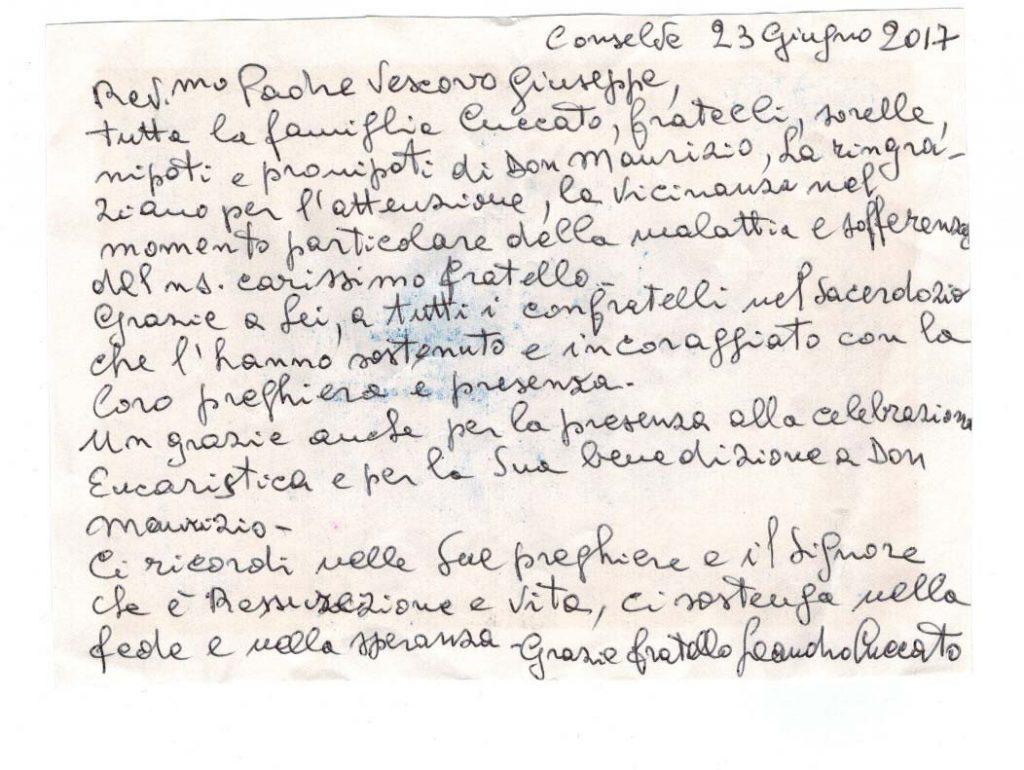 Conselve 23 Giugno 2017
Rev.mo Padre Vescovo Giuseppe,
tutta la famiglia Cuccato, fratelli, sorelle,
nipoti e pronipoti di Don Maurizio, La ringra-
ziano per l'attenzione, la vicinanza nel
momento particolare della malattia e sofferenza
del ns. carissimo fratello.
Grazie a Lei, a tutti i confratelli nel Sacerdozio
che l'hanno sostenuto e incoraggiato con la
loro preghiera e presenza.
Un grazie anche per la presenza alla celebrazione
Eucaristica e per la Sua benedizione a Don
Maurizio-
Ci ricordi nelle Sue preghiere e il Signore
che è Ressurezione e Vita, ci sostenga nella
fede e nella speranza - Grazie fratello Leandro Cuccato